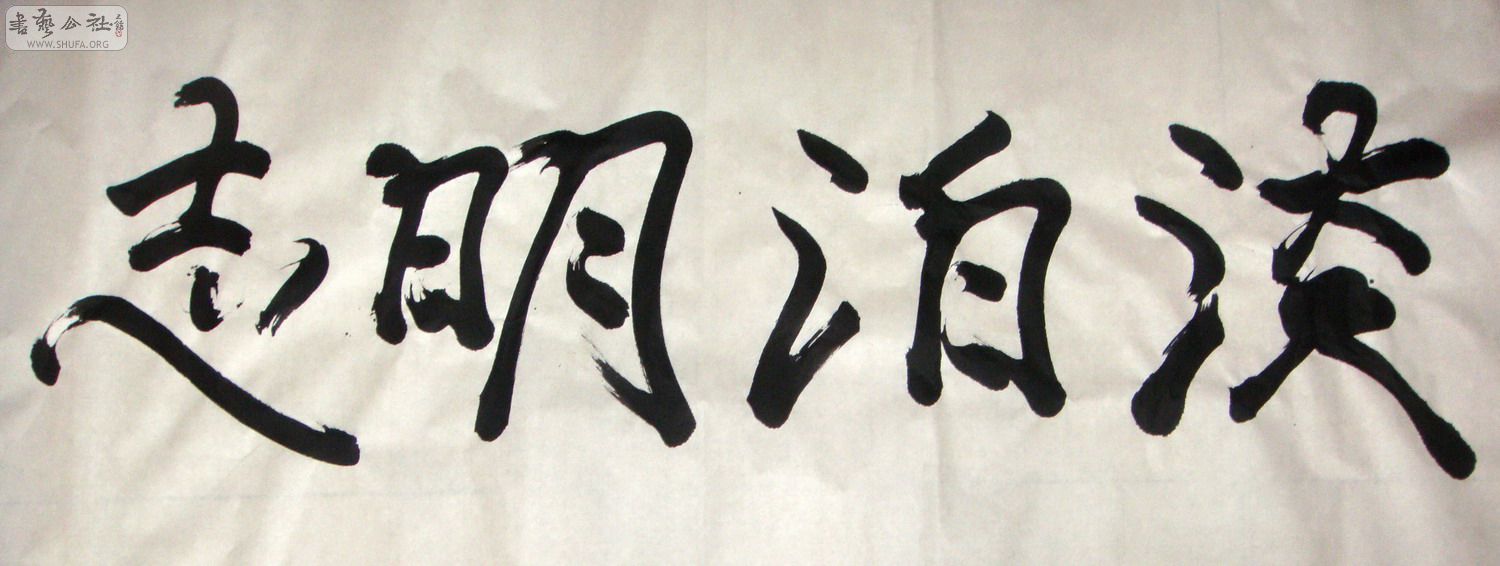 淡泊明志
書藝公社
WWW.SHUFA.ORG